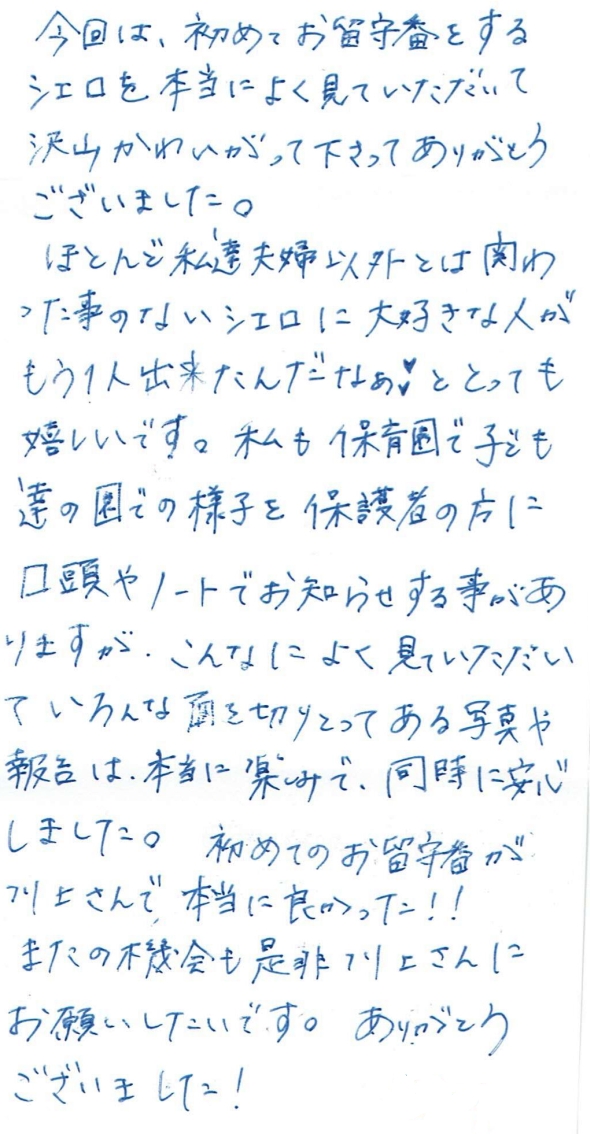 今回は、初めてお留守番をする
シエロを本当によく見ていただいて
沢山かわいがって下さってありがとう
ございました。
ほとんど私達夫婦以外とは関わ
った事のないシエロに大好きな人が
もう1人出来たんだなぁ♥ととっても
嬉しいです。私も保育園で子ども
達の園での様子を保護者の方に
口頭やノートでお知らせする事があ
りますが、こんなによく見ていただい
ていろんな面を切りとってある写真や
報告は、本当に楽しみで、同時に安心
しました。 初めてのお留守番が
川上さんで、本当に良かった!!
またの機会も是非川上さんに
お願いしたいです。 ありがとう
ございました!